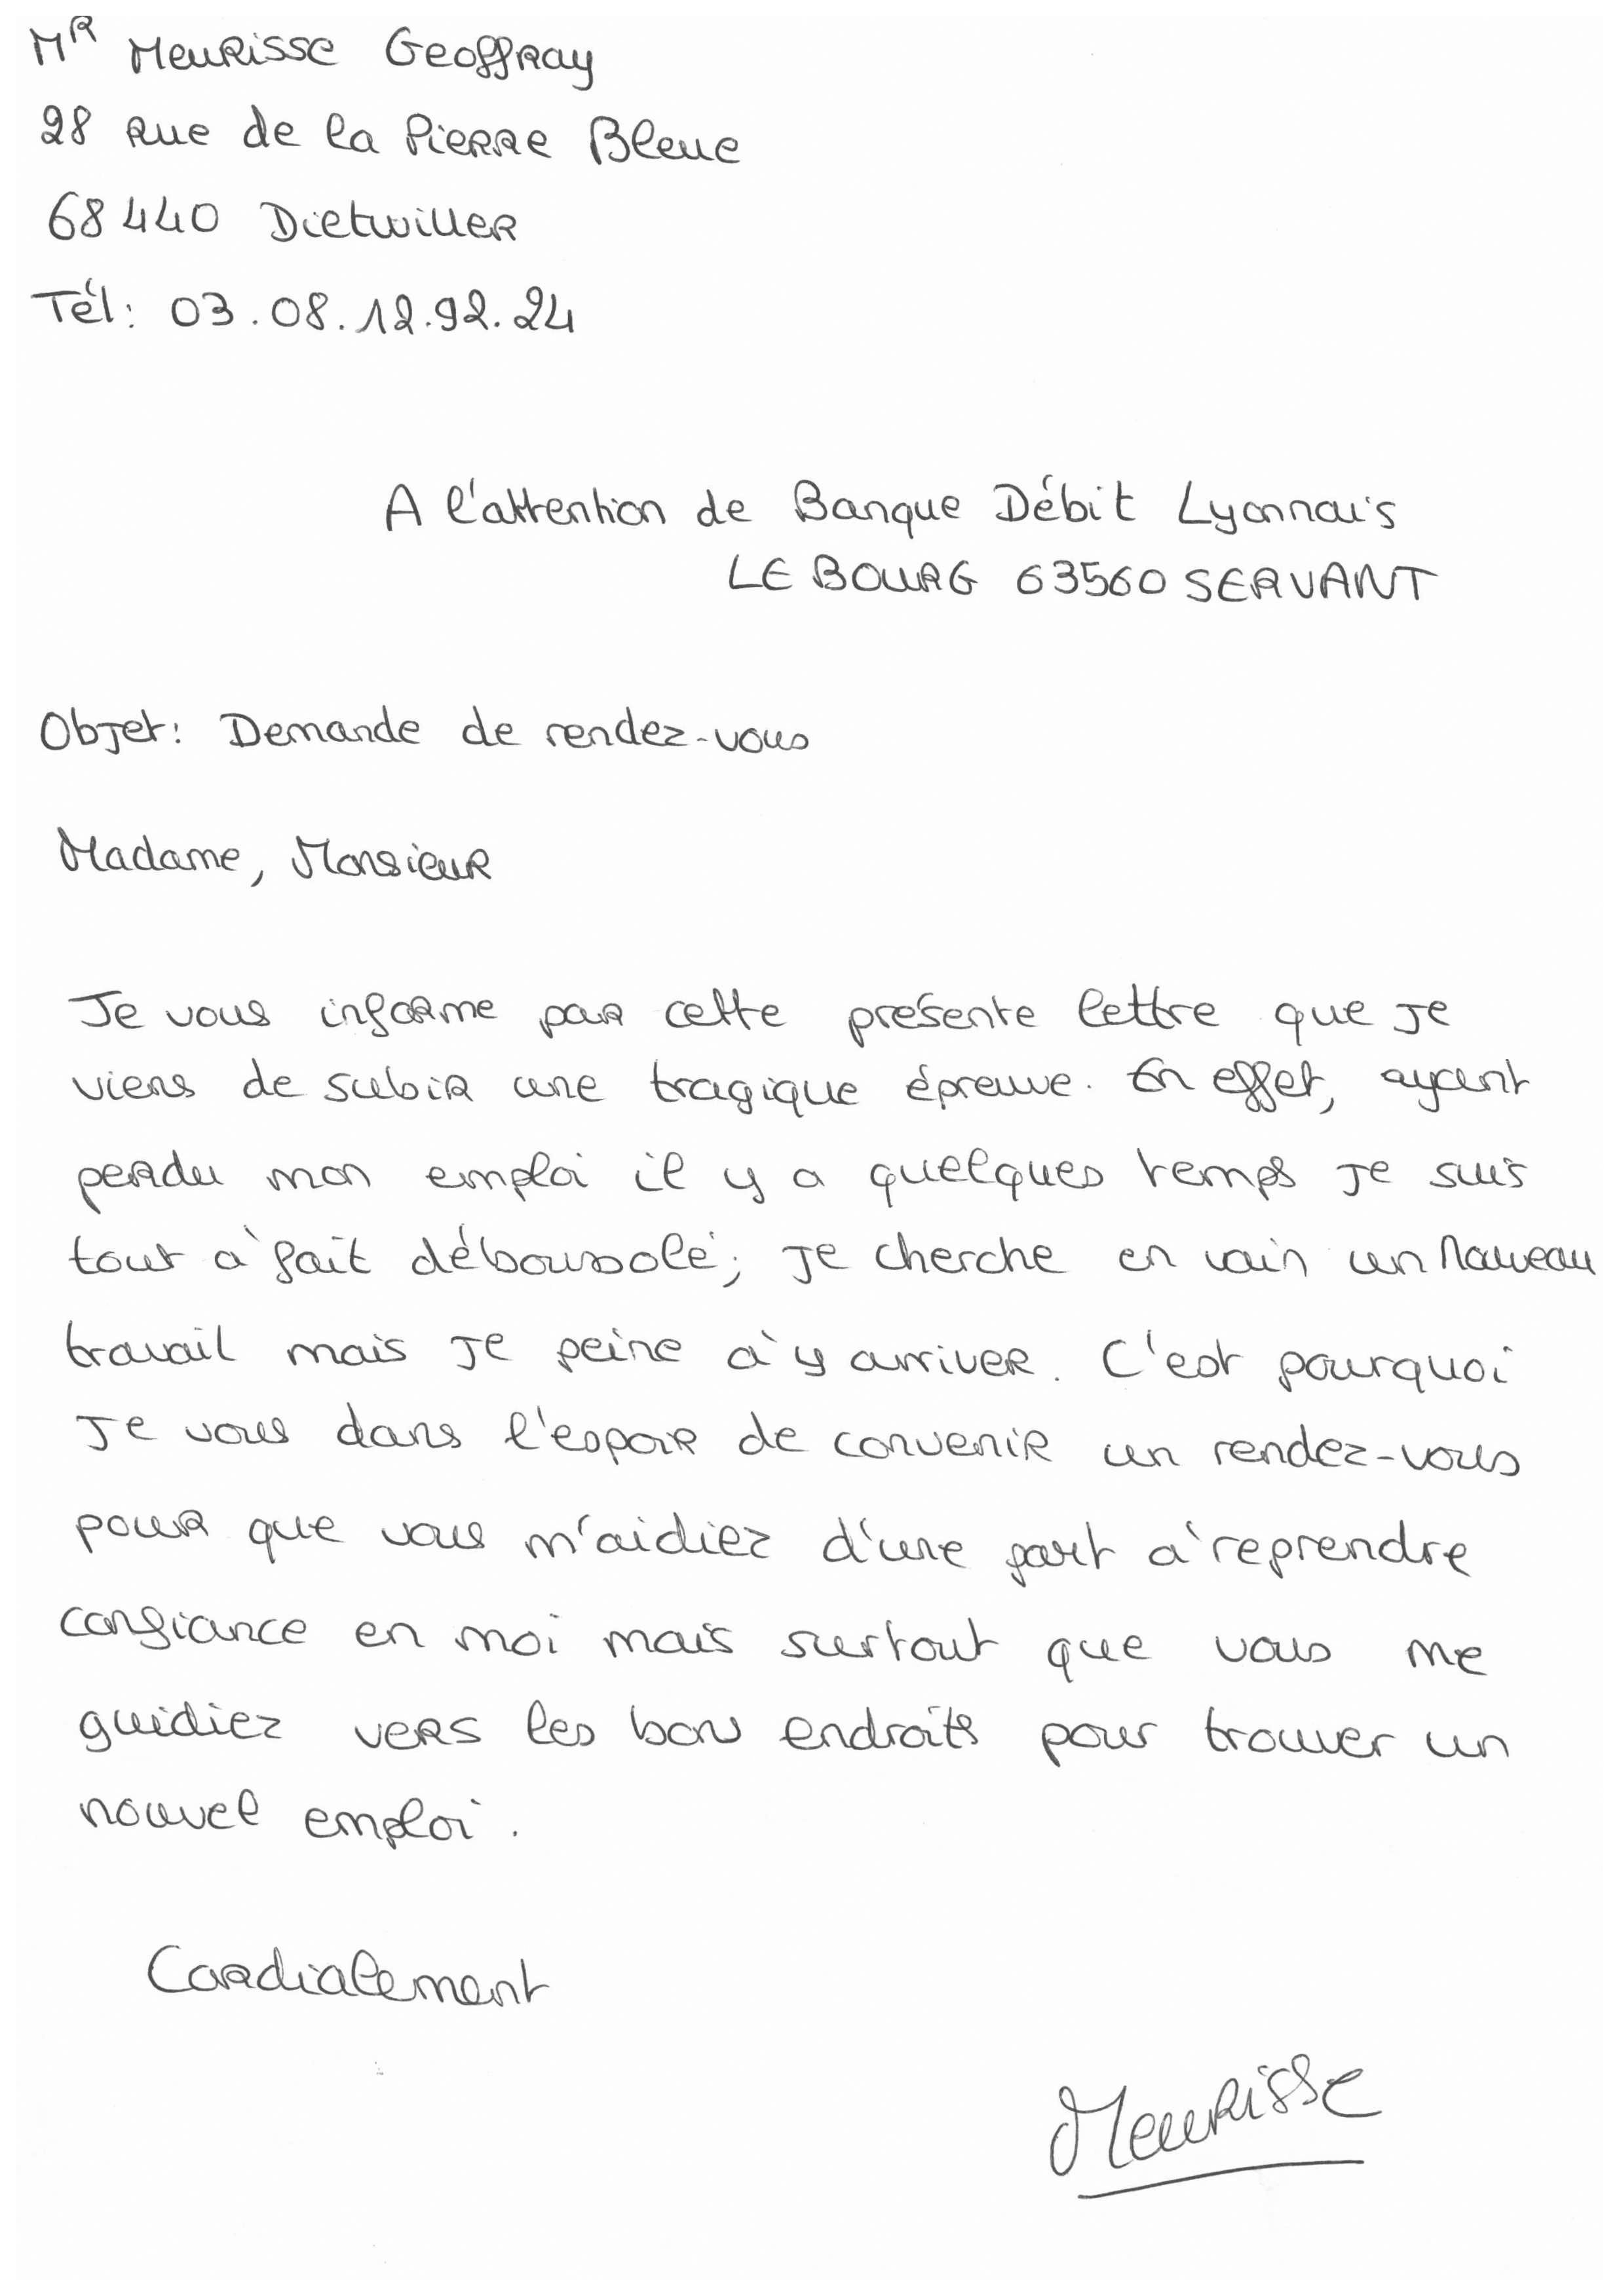 Mr Meurisse Geoffray
28 rue de la Pierre Bleue
68440 Dietwiller
Tél: 03.08.12.92.24
A l'attention de Banque Débit Lyonnais
LE BOURG 63560 SERVANT
Objet: Demande de rendez-vous
Madame, Monsieur
Je vous informe par cette présente lettre que je
viens de subir une tragique épreuve. En effet, ayant
perdu mon emploi il y a quelques temps je suis
tout à fait déboussolé; je cherche en vain un nouveau
travail mais je peine à y arriver. C'est pourquoi
je vous dans l'espoir de convenir un rendez-vous
pour que vous m'aidiez d'une part à reprendre
confiance en moi mais surtout que vous me
guidiez vers les bons endroits pour trouver un
nouvel emploi.
Cordialement
Meurisse